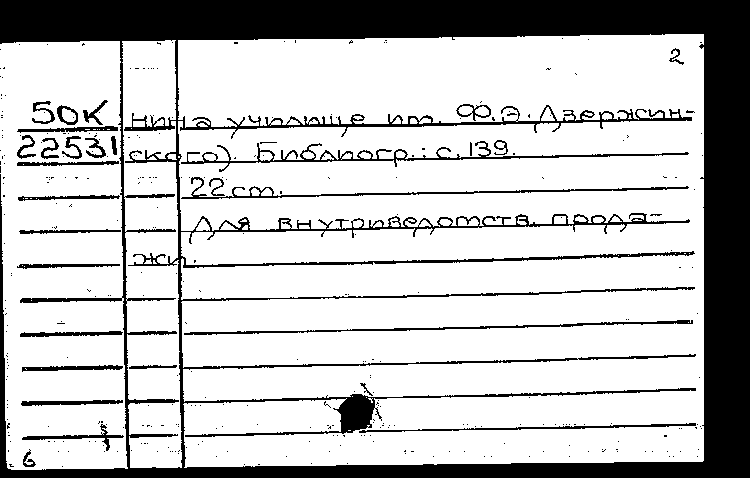 2
50К нина училище им. Ф.Э. Дзержин-
22531 ского). Библиогр.: с. 139.
22 см.
Для внутриведомств. прода-
жи.
6